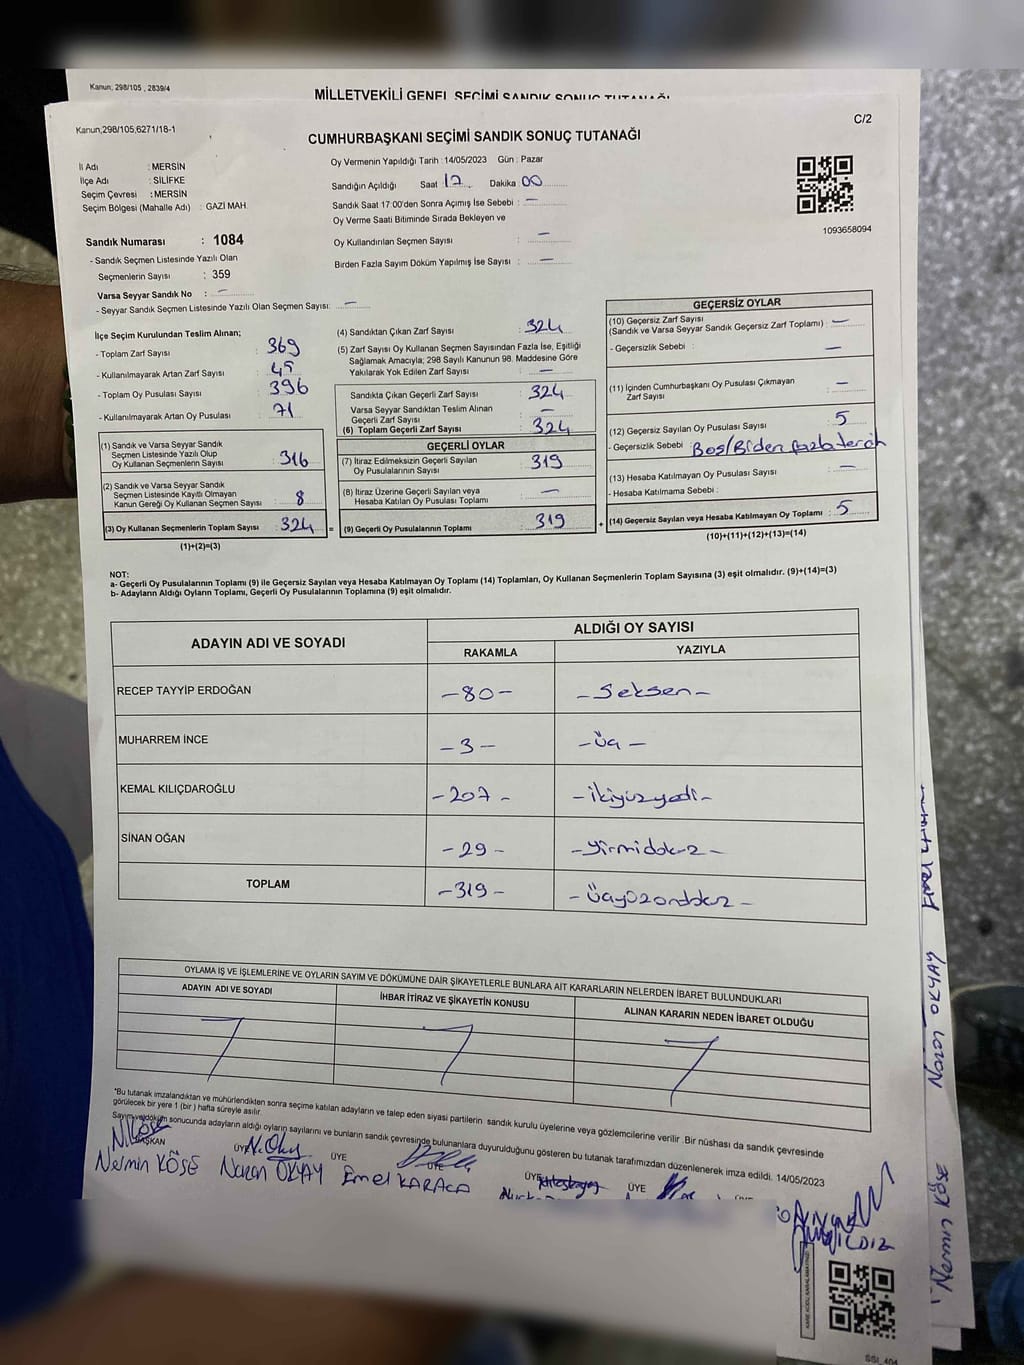 Kanun; 298/105 , 2839/4
MİLLETVEKİLİ GENEL SEÇİMİ SANDIK SONUÇ TUTANAĞI
Kanun;298/105,6271/18-1
C/2
CUMHURBAŞKANI SEÇİMİ SANDIK SONUÇ TUTANAĞI
İl Adı : MERSİN
İlçe Adı : SİLİFKE
Seçim Çevresi : MERSİN
Seçim Bölgesi (Mahalle Adı) : GAZİ MAH.
Oy Vermenin Yapıldığı Tarih : 14/05/2023 Gün : Pazar
Sandığın Açıldığı Saat 17 Dakika 00
Sandık Saat 17:00'den Sonra Açımış İse Sebebi : —
Oy Verme Saati Bitiminde Sırada Bekleyen ve
Oy Kullandırılan Seçmen Sayısı : —
Birden Fazla Sayım Döküm Yapılmış İse Sayısı : —
1093658094
Sandık Numarası : 1084
- Sandık Seçmen Listesinde Yazılı Olan
Seçmenlerin Sayısı : 359
Varsa Seyyar Sandık No : —
- Seyyar Sandık Seçmen Listesinde Yazılı Olan Seçmen Sayısı: —
İlçe Seçim Kurulundan Teslim Alınan;
- Toplam Zarf Sayısı : 369
- Kullanılmayarak Artan Zarf Sayısı : 45
- Toplam Oy Pusulası Sayısı : 396
- Kullanılmayarak Artan Oy Pusulası : 71
(1) Sandık ve Varsa Seyyar Sandık
Seçmen Listesinde Yazılı Olup
Oy Kullanan Seçmenlerin Sayısı : 316
(2) Sandık ve Varsa Seyyar Sandık
Seçmen Listesinde Kayıtlı Olmayan
Kanun Gereği Oy Kullanan Seçmen Sayısı : 8
(3) Oy Kullanan Seçmenlerin Toplam Sayısı : 324 =
(1)+(2)=(3)
(4) Sandıktan Çıkan Zarf Sayısı : 324
(5) Zarf Sayısı Oy Kullanan Seçmen Sayısından Fazla İse, Eşitliği
Sağlamak Amacıyla; 298 Sayılı Kanunun 98. Maddesine Göre
Yakılarak Yok Edilen Zarf Sayısı : —
Sandıkta Çıkan Geçerli Zarf Sayısı : 324
Varsa Seyyar Sandıktan Teslim Alınan
Geçerli Zarf Sayısı : —
(6) Toplam Geçerli Zarf Sayısı : 324
GEÇERLİ OYLAR
(7) İtiraz Edilmeksizin Geçerli Sayılan
Oy Pusulalarının Sayısı : 319
(8) İtiraz Üzerine Geçerli Sayılan veya
Hesaba Katılan Oy Pusulası Toplamı : —
(9) Geçerli Oy Pusulalarının Toplamı : 319 +
GEÇERSİZ OYLAR
(10) Geçersiz Zarf Sayısı
(Sandık ve Varsa Seyyar Sandık Geçersiz Zarf Toplamı) : —
- Geçersizlik Sebebi : —
(11) İçinden Cumhurbaşkanı Oy Pusulası Çıkmayan
Zarf Sayısı : —
(12) Geçersiz Sayılan Oy Pusulası Sayısı : 5
- Geçersizlik Sebebi : Boş/Birden fazla tercih
(13) Hesaba Katılmayan Oy Pusulası Sayısı : —
- Hesaba Katılmama Sebebi :
(14) Geçersiz Sayılan veya Hesaba Katılmayan Oy Toplamı : 5
(10)+(11)+(12)+(13)=(14)
NOT:
a- Geçerli Oy Pusulalarının Toplamı (9) ile Geçersiz Sayılan veya Hesaba Katılmayan Oy Toplamı (14) Toplamları, Oy Kullanan Seçmenlerin Toplam Sayısına (3) eşit olmalıdır. (9)+(14)=(3)
b- Adayların Aldığı Oyların Toplamı, Geçerli Oy Pusulalarının Toplamına (9) eşit olmalıdır.
ADAYIN ADI VE SOYADI
ALDIĞI OY SAYISI
RAKAMLA YAZIYLA
RECEP TAYYİP ERDOĞAN -80- -Seksen-
MUHARREM İNCE -3- -Üç-
KEMAL KILIÇDAROĞLU -207- -ikiyüzyedi-
SİNAN OĞAN -29- -yirmidokuz-
TOPLAM -319- -Üçyüzondokuz-
OYLAMA İŞ VE İŞLEMLERİNE VE OYLARIN SAYIM VE DÖKÜMÜNE DAİR ŞİKAYETLERLE BUNLARA AİT KARARLARIN NELERDEN İBARET BULUNDUKLARI
ADAYIN ADI VE SOYADI
İHBAR İTİRAZ VE ŞİKAYETİN KONUSU
ALINAN KARARIN NEDEN İBARET OLDUĞU
*Bu tutanak imzalandıktan ve mühürlendikten sonra seçime katılan adayların ve talep eden siyasi partilerin sandık kurulu üyelerine veya gözlemcilerine verilir .Bir nüshası da sandık çevresinde
görülecek bir yere 1 (bir ) hafta süreyle asılır.
Sayım ve döküm sonucunda adayların aldığı oyların sayılarını ve bunların sandık çevresinde bulunanlara duyurulduğunu gösteren bu tutanak tarafımızdan düzenlenerek imza edildi. 14/05/2023
BAŞKAN ÜYE ÜYE ÜYE ÜYE ÜYE
Nermin KÖSE Nuran OKYAY Emel KARACA
YILDIZ
Nuran OKYAY
Nermin KÖSE